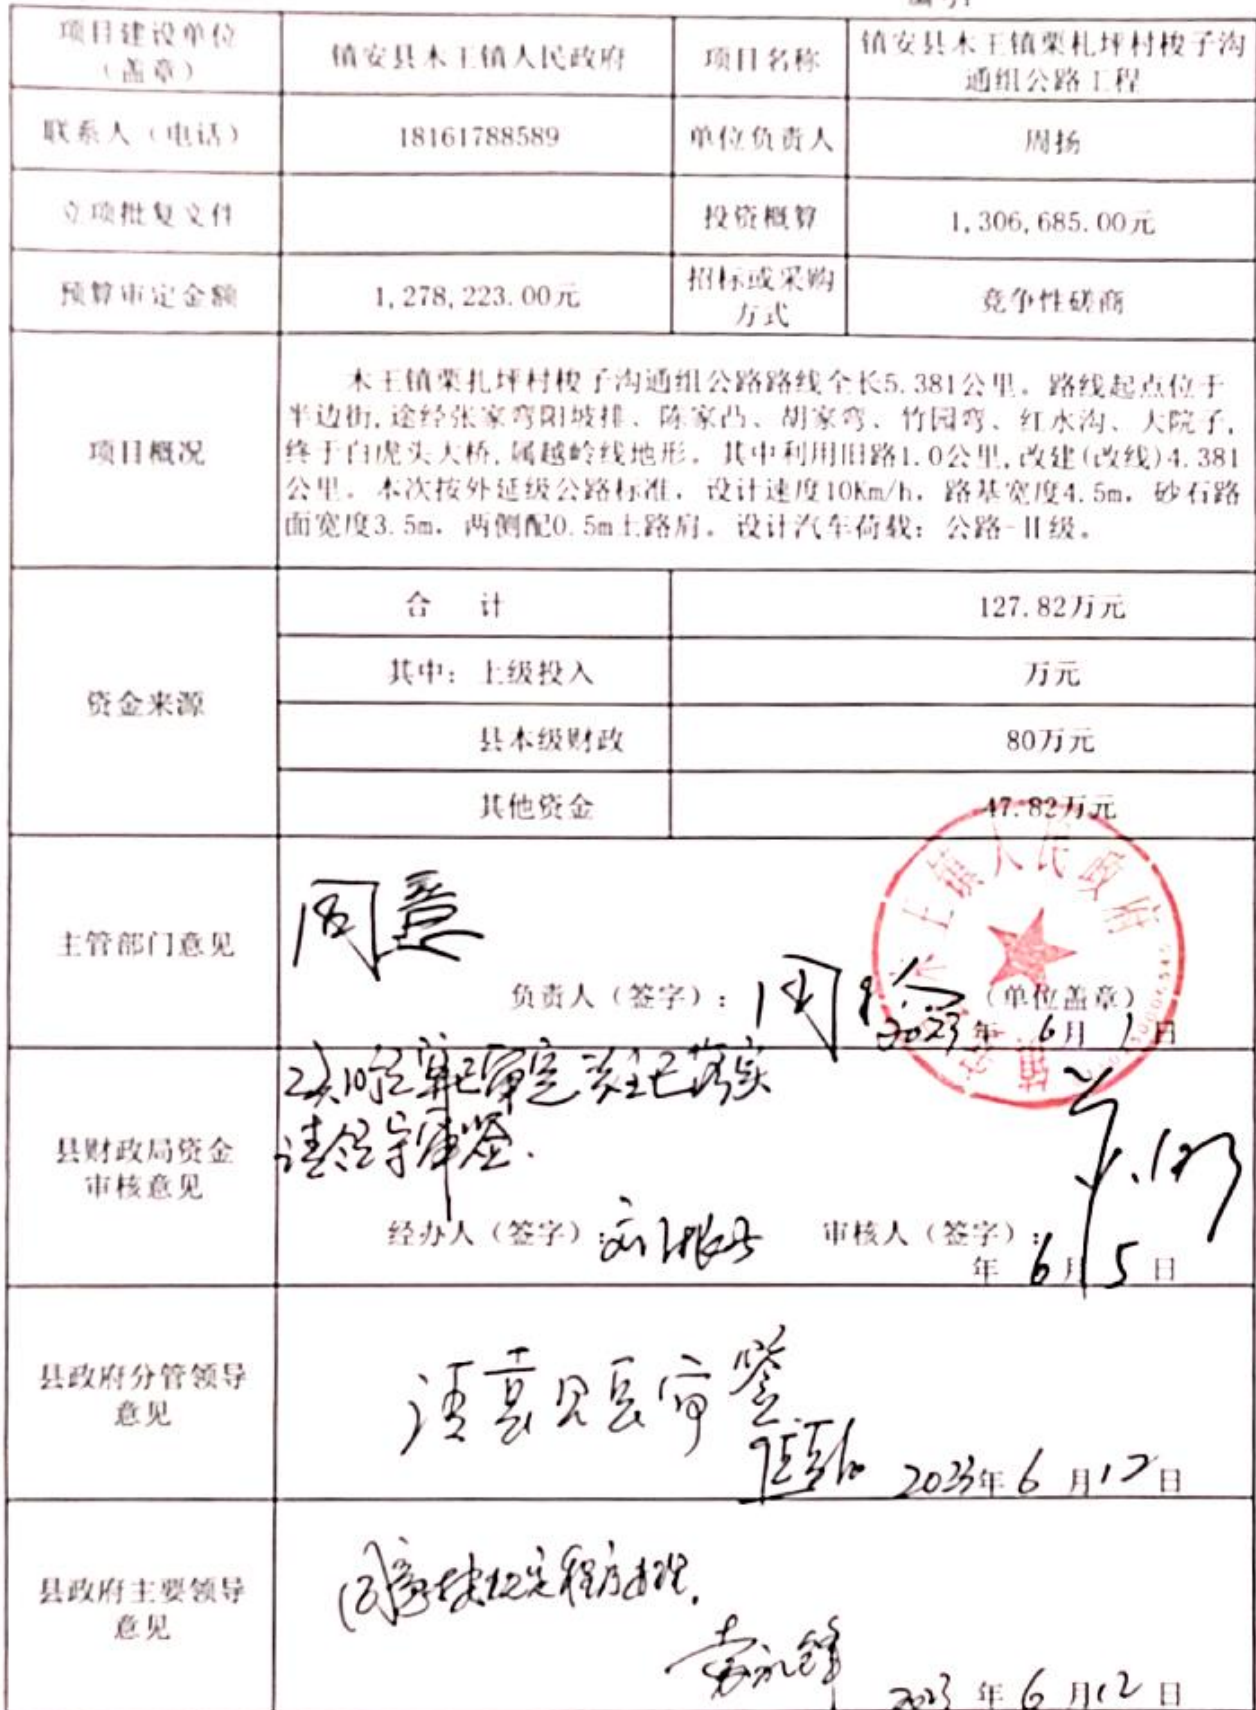 项目建设单位
（盖章）
镇安县木王镇人民政府
项目名称
镇安县木王镇栗扎坪村梭子沟
通组公路工程
联系人（电话）
18161788589
单位负责人
周扬
立项批复文件
投资概算
1,306,685.00元
预算审定金额
1,278,223.00元
招标或采购
方式
竞争性磋商
项目概况
木王镇栗扎坪村梭子沟通组公路路线全长5.381公里。路线起点位于
半边街,途经张家弯阳坡排、陈家凸、胡家弯、竹园弯、红水沟、大院子,
终于白虎头大桥,属越岭线地形。其中利用旧路1.0公里,改建(改线)4.381
公里。本次按外延级公路标准，设计速度10Km/h，路基宽度4.5m，砂石路
面宽度3.5m，两侧配0.5m土路肩。设计汽车荷载：公路-II级。
资金来源
合 计
127.82万元
其中：上级投入
万元
县本级财政
80万元
其他资金
47.82万元
主管部门意见
同意
负责人（签字）：
周扬
（单位盖章）
2023年 6月 1日
木王镇人民政府
县财政局资金
审核意见
预算已审定 资金已落实
请领导审签.
经办人（签字）：
审核人（签字）：
年 6月 5日
县政府分管领导
意见
请县长审签
2023年 6月 12日
县政府主要领导
意见
同意按规定程序办理.
2023年 6月 12日